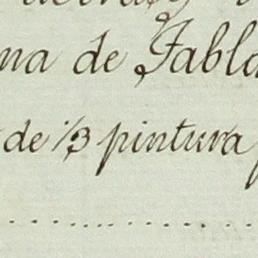 na de Tabla
de 1/3 pintura